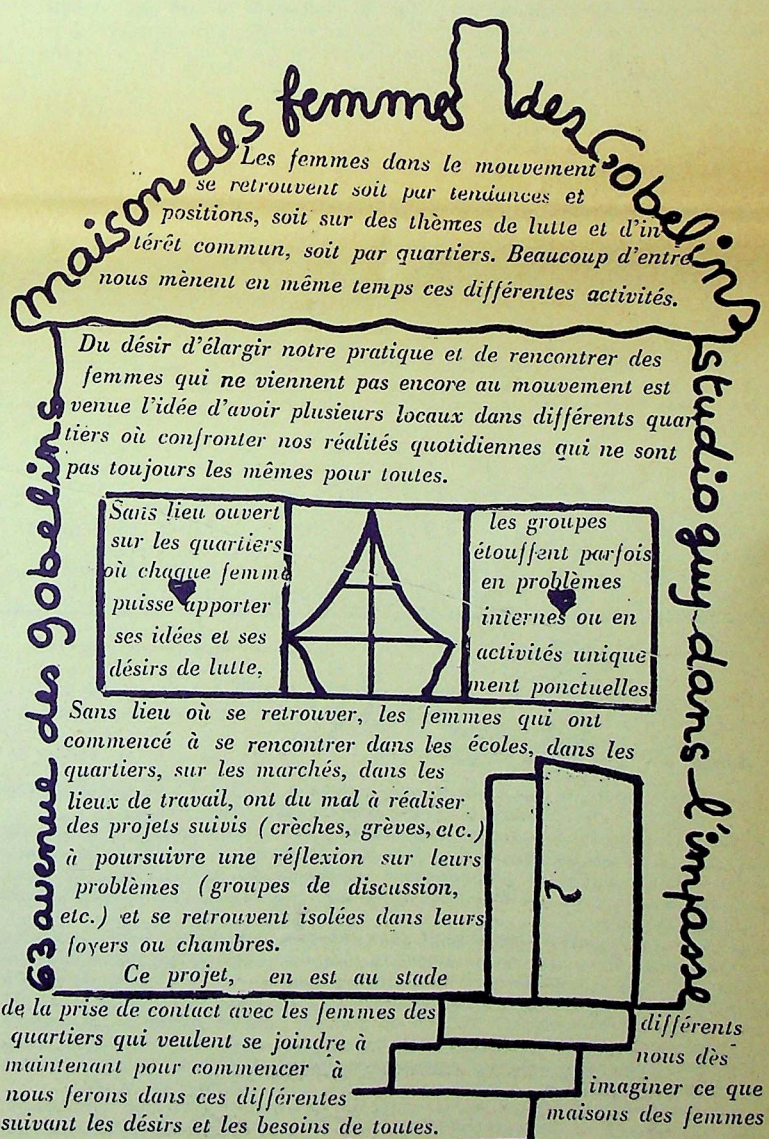 maison des femmes des Gobelins
Les femmes dans le mouvement
se retrouvent soit par tendances et
positions, soit sur des thèmes de lutte et d'in-
térêt commun, soit par quartiers. Beaucoup d'entre
nous mènent en même temps ces différentes activités.
Du désir d'élargir notre pratique et de rencontrer des
femmes qui ne viennent pas encore au mouvement est
venue l'idée d'avoir plusieurs locaux dans différents quar
tiers où confronter nos réalités quotidiennes qui ne sont
pas toujours les mêmes pour toutes.
Sans lieu ouvert
sur les quartiers
où chaque femme
puisse apporter
ses idées et ses
désirs de lutte,
les groupes
étouffent parfois
en problèmes
internes ou en
activités unique
ment ponctuelles
Sans lieu où se retrouver, les femmes qui ont
commencé à se rencontrer dans les écoles, dans les
quartiers, sur les marchés, dans les
lieux de travail, ont du mal à réaliser
des projets suivis (crèches, grèves, etc.)
à poursuivre une réflexion sur leurs
problèmes (groupes de discussion,
etc.) et se retrouvent isolées dans leurs
foyers ou chambres.
Ce projet, en est au stade
de la prise de contact avec les femmes des différents
quartiers qui veulent se joindre à nous dès
maintenant pour commencer à imaginer ce que
nous ferons dans ces différentes maisons des femmes
suivant les désirs et les besoins de toutes.
63 avenue des gobelins
studio guy-dans l'impasse